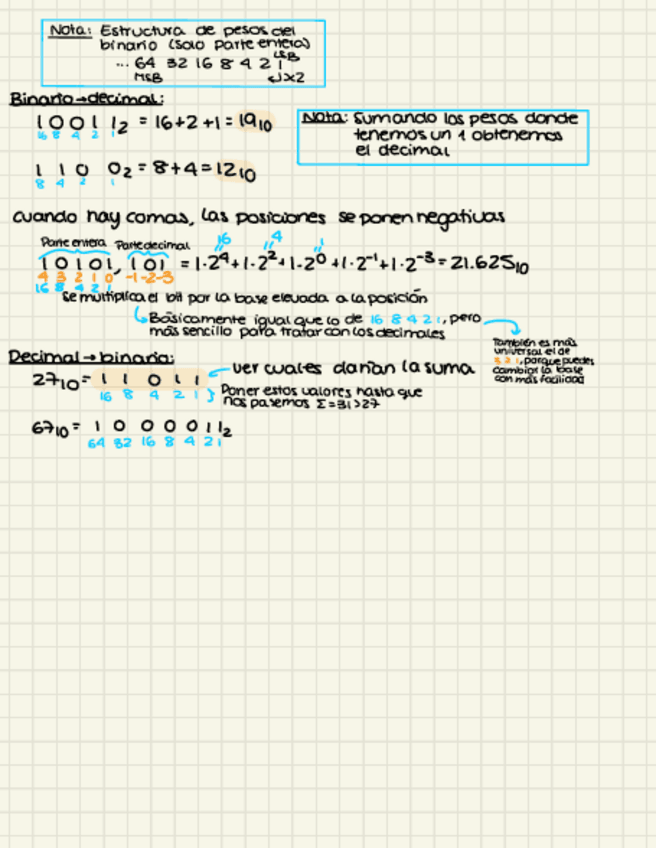 Nota: Estructura de pesos del
binario (solo parte entera)
LSB
... 64 32 16 8 4 2 1
MSB ↲×2
Binario→decimal:
1 0 0 1 1₂ = 16+2+1 = 19₁₀
16 8 4 2 1
Nota: Sumando los pesos donde
tenemos un 1 obtenemos
el decimal
1 1 0 0₂ = 8+4 = 12₁₀
8 4 2 1
cuando hay comas, las posiciones se ponen negativas
Parte entera Parte decimal 16 4 1
1 0 1 0 1, 1 0 1 = 1·2⁴+1·2²+1·2⁰+1·2⁻¹+1·2⁻³ = 21.625₁₀
4 3 2 1 0 -1-2-3
16 8 4 2 1
se multiplica el bit por la base elevada a la posición
Básicamente igual que lo de 16 8 4 2 1, pero
más sencillo para tratar con los decimales
También es más
universal el de
3 2 1, porque puedes
cambiar la base
con más facilidad
Decimal→binario:
27₁₀ = 1 1 0 1 1 ver cuales darían la suma
16 8 4 2 1 } Poner estos valores hasta que
nos pasemos Σ=31>27
67₁₀ = 1 0 0 0 0 1 1₂
64 32 16 8 4 2 1